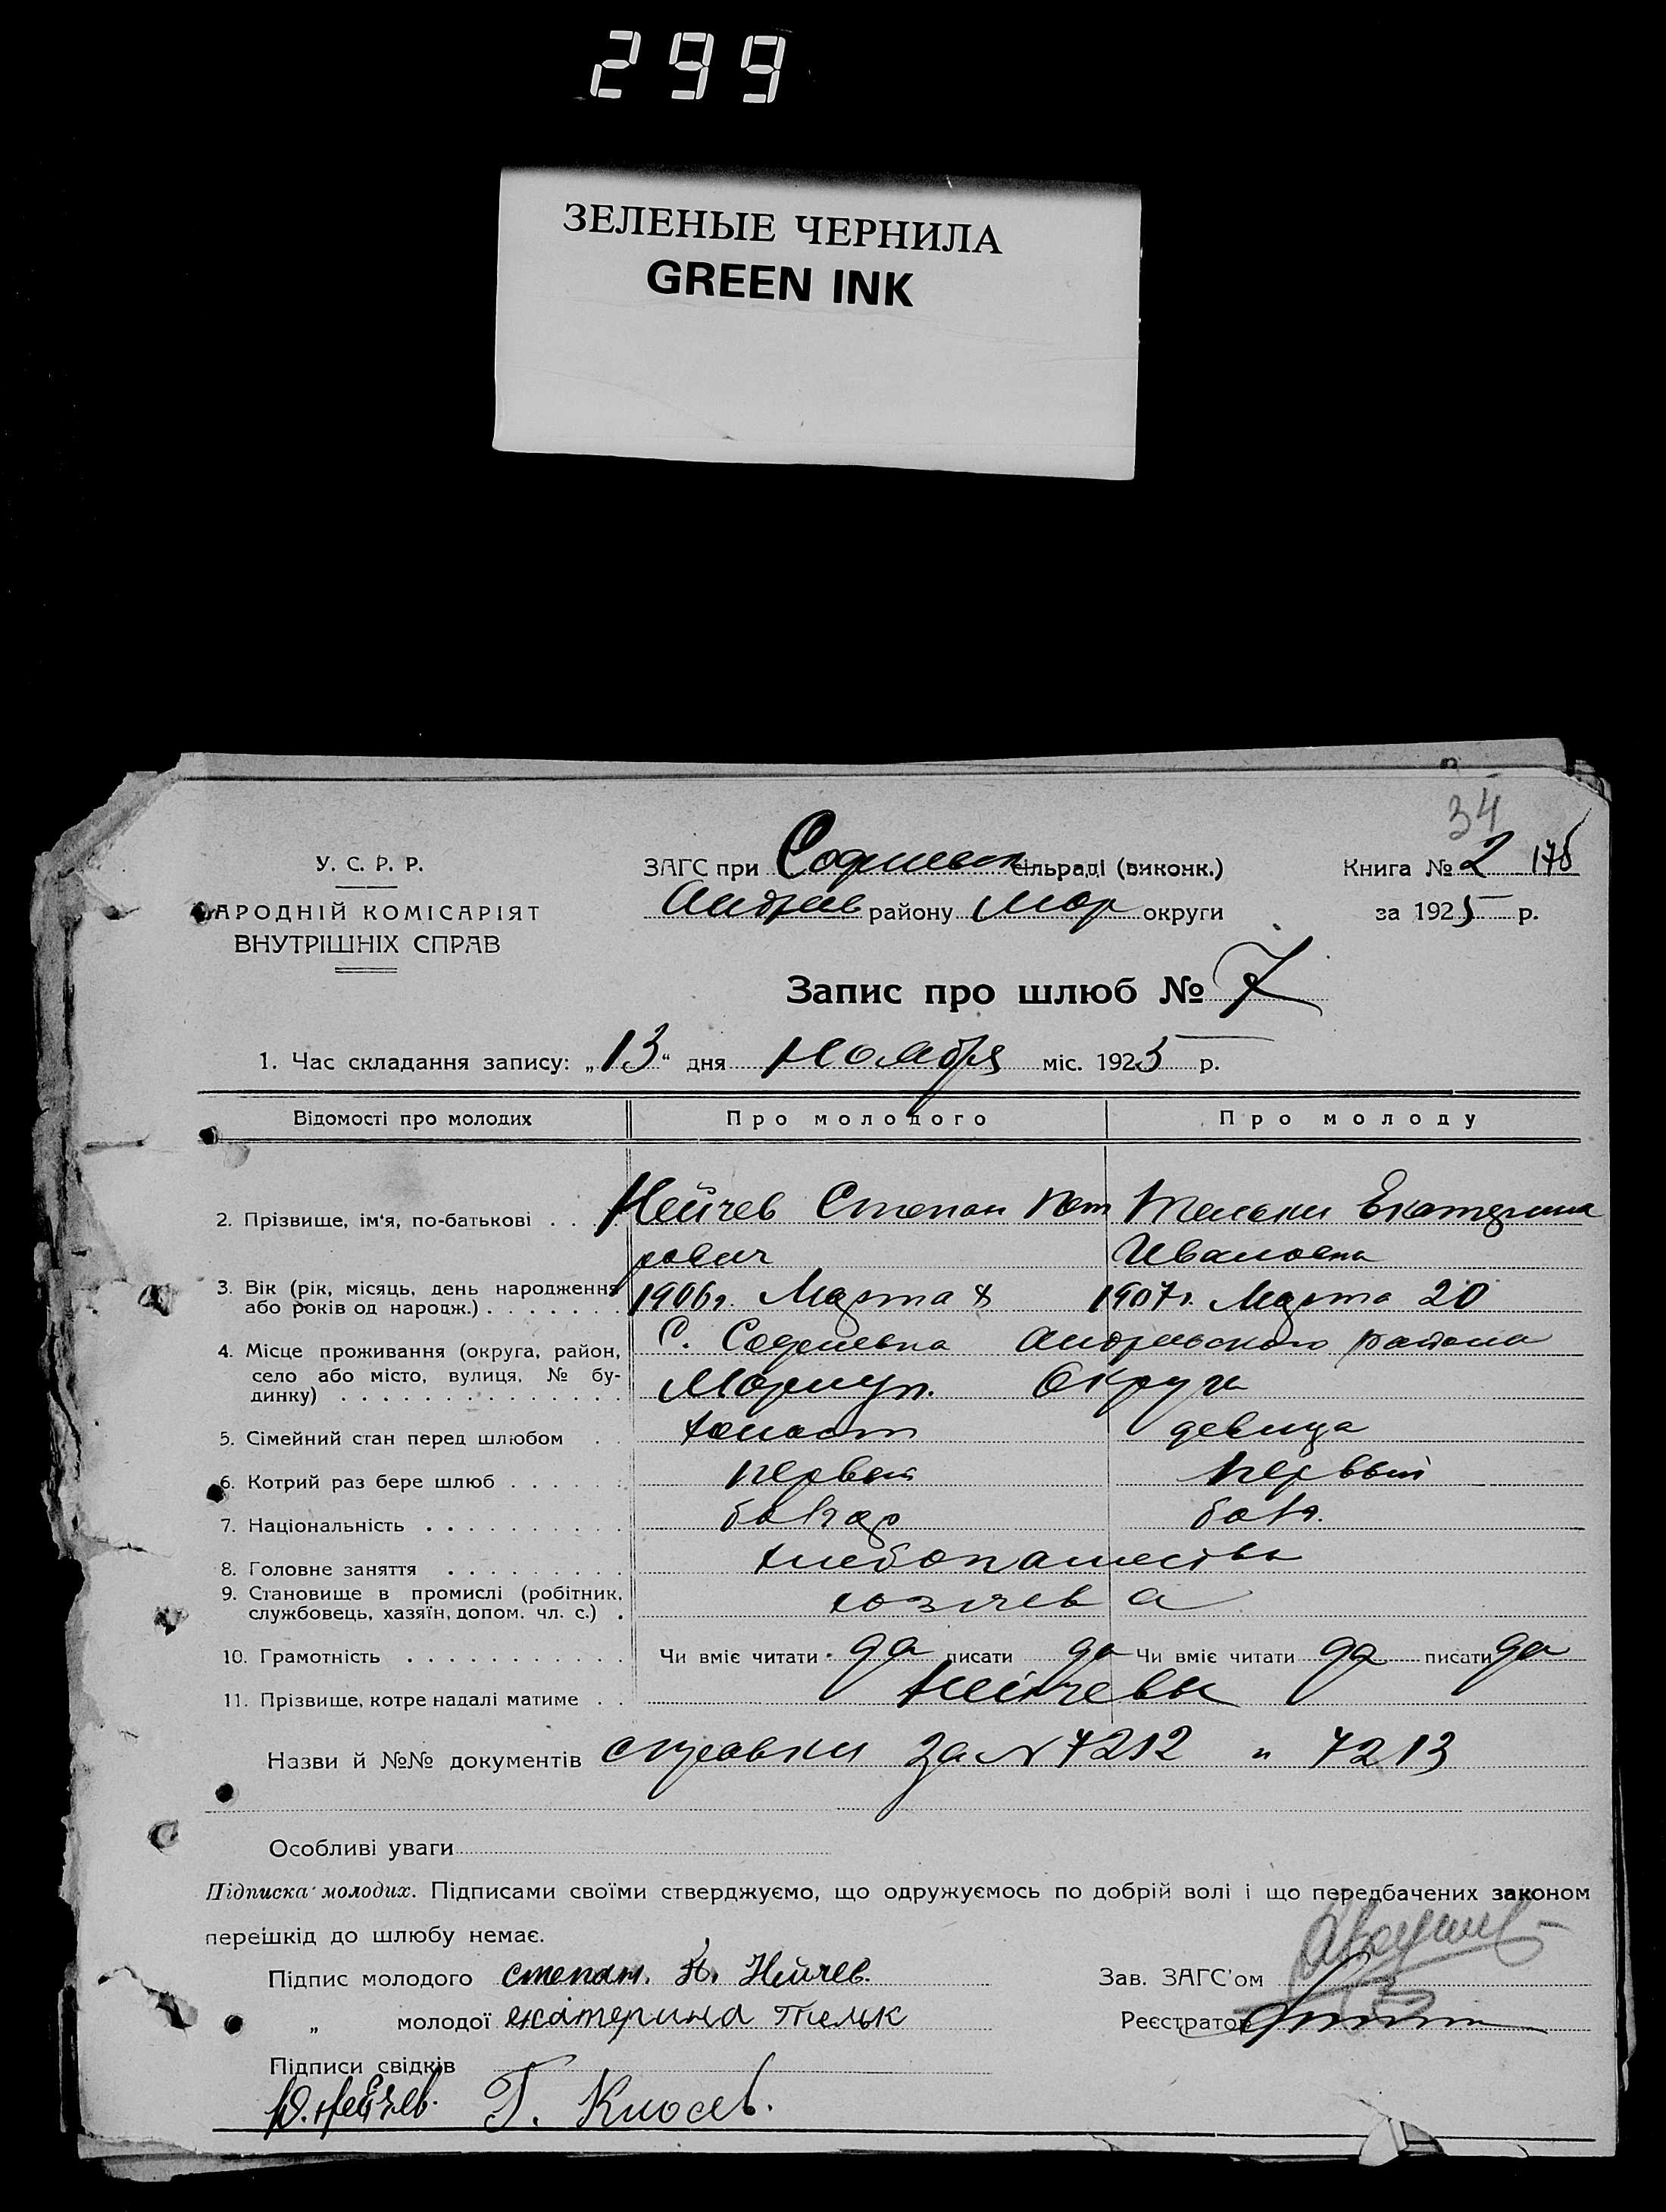 299
ЗЕЛЕНЫЕ ЧЕРНИЛА
GREEN INK
34
У. С. Р. Р.
АРОДНІЙ КОМІСАРІЯТ
ВНУТРІШНІХ СПРАВ
ЗАГС при Софиевск сільраді (виконк.)
Андрев району Мар округи
Книга № 2 176
за 1925 р.
Запис про шлюб № 7
1. Час складання запису: „13" дня Ноября міс. 1925 р.
Відомості про молодих Про молодого Про молоду
2. Прізвище, ім'я, по-батькові . . Нейчев Степан Пет Тельки Екатерина
рович Ивановна
3. Вік (рік, місяць, день народження або років од народж.) . . . . . . . 1906 г. Марта 8 1907 г. Марта 20
4. Місце проживання (округа, район, село або місто, вулиця, № будинку) . . . . . . . . . . . . . С. Софиевка Андреевского района
Мариуп. Округи
5. Сімейний стан перед шлюбом . . холост девица
6. Котрий раз бере шлюб . . . . . . первый первый
7. Національність . . . . . . . . . . болгар болг.
8. Головне заняття . . . . . . . . . хлебопашества
9. Становище в промислі (робітник, службовець, хазяїн, допом. чл. с.) .
10. Грамотність . . . . . . . . . . . Чи вміє читати да писати да Чи вміє читати да писати да
11. Прізвище, котре надалі матиме . . Нейчевы
Назви й №№ документів справки за N 7212 и 7213
Особливі уваги
Підписка молодих. Підписами своїми стверджуємо, що одружуємось по добрій волі і що передбачених законом
перешкід до шлюбу немає.
Підпис молодого степан. П. Нейчев.
Зав. ЗАГС'ом
„ молодої екатерина тельк
Реєстратор
Підписи свідків
Ю. Нейчев. Г. Кюсев.